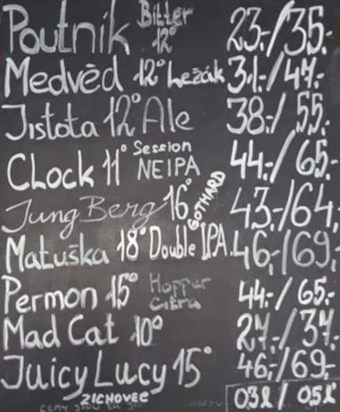 Poutník Bitter 12° 23,-/35,-
Medvěd 12° Ležák 31,-/47,-
Jistota 12° Ale 38,-/55,-
CLock 11° Session NEIPA 44,-/65,-
Jung Berg 16° GOTHARD 43,-/64,-
Matuška 18° Double IPA 46,-/69,-
Permon 15° Hopper Citra 44,-/65,-
Mad Cat 10° 27,-/37,-
Juicy Lucy 15° 46,-/69,-
ZICHOVEC 0,3l / 0,5l